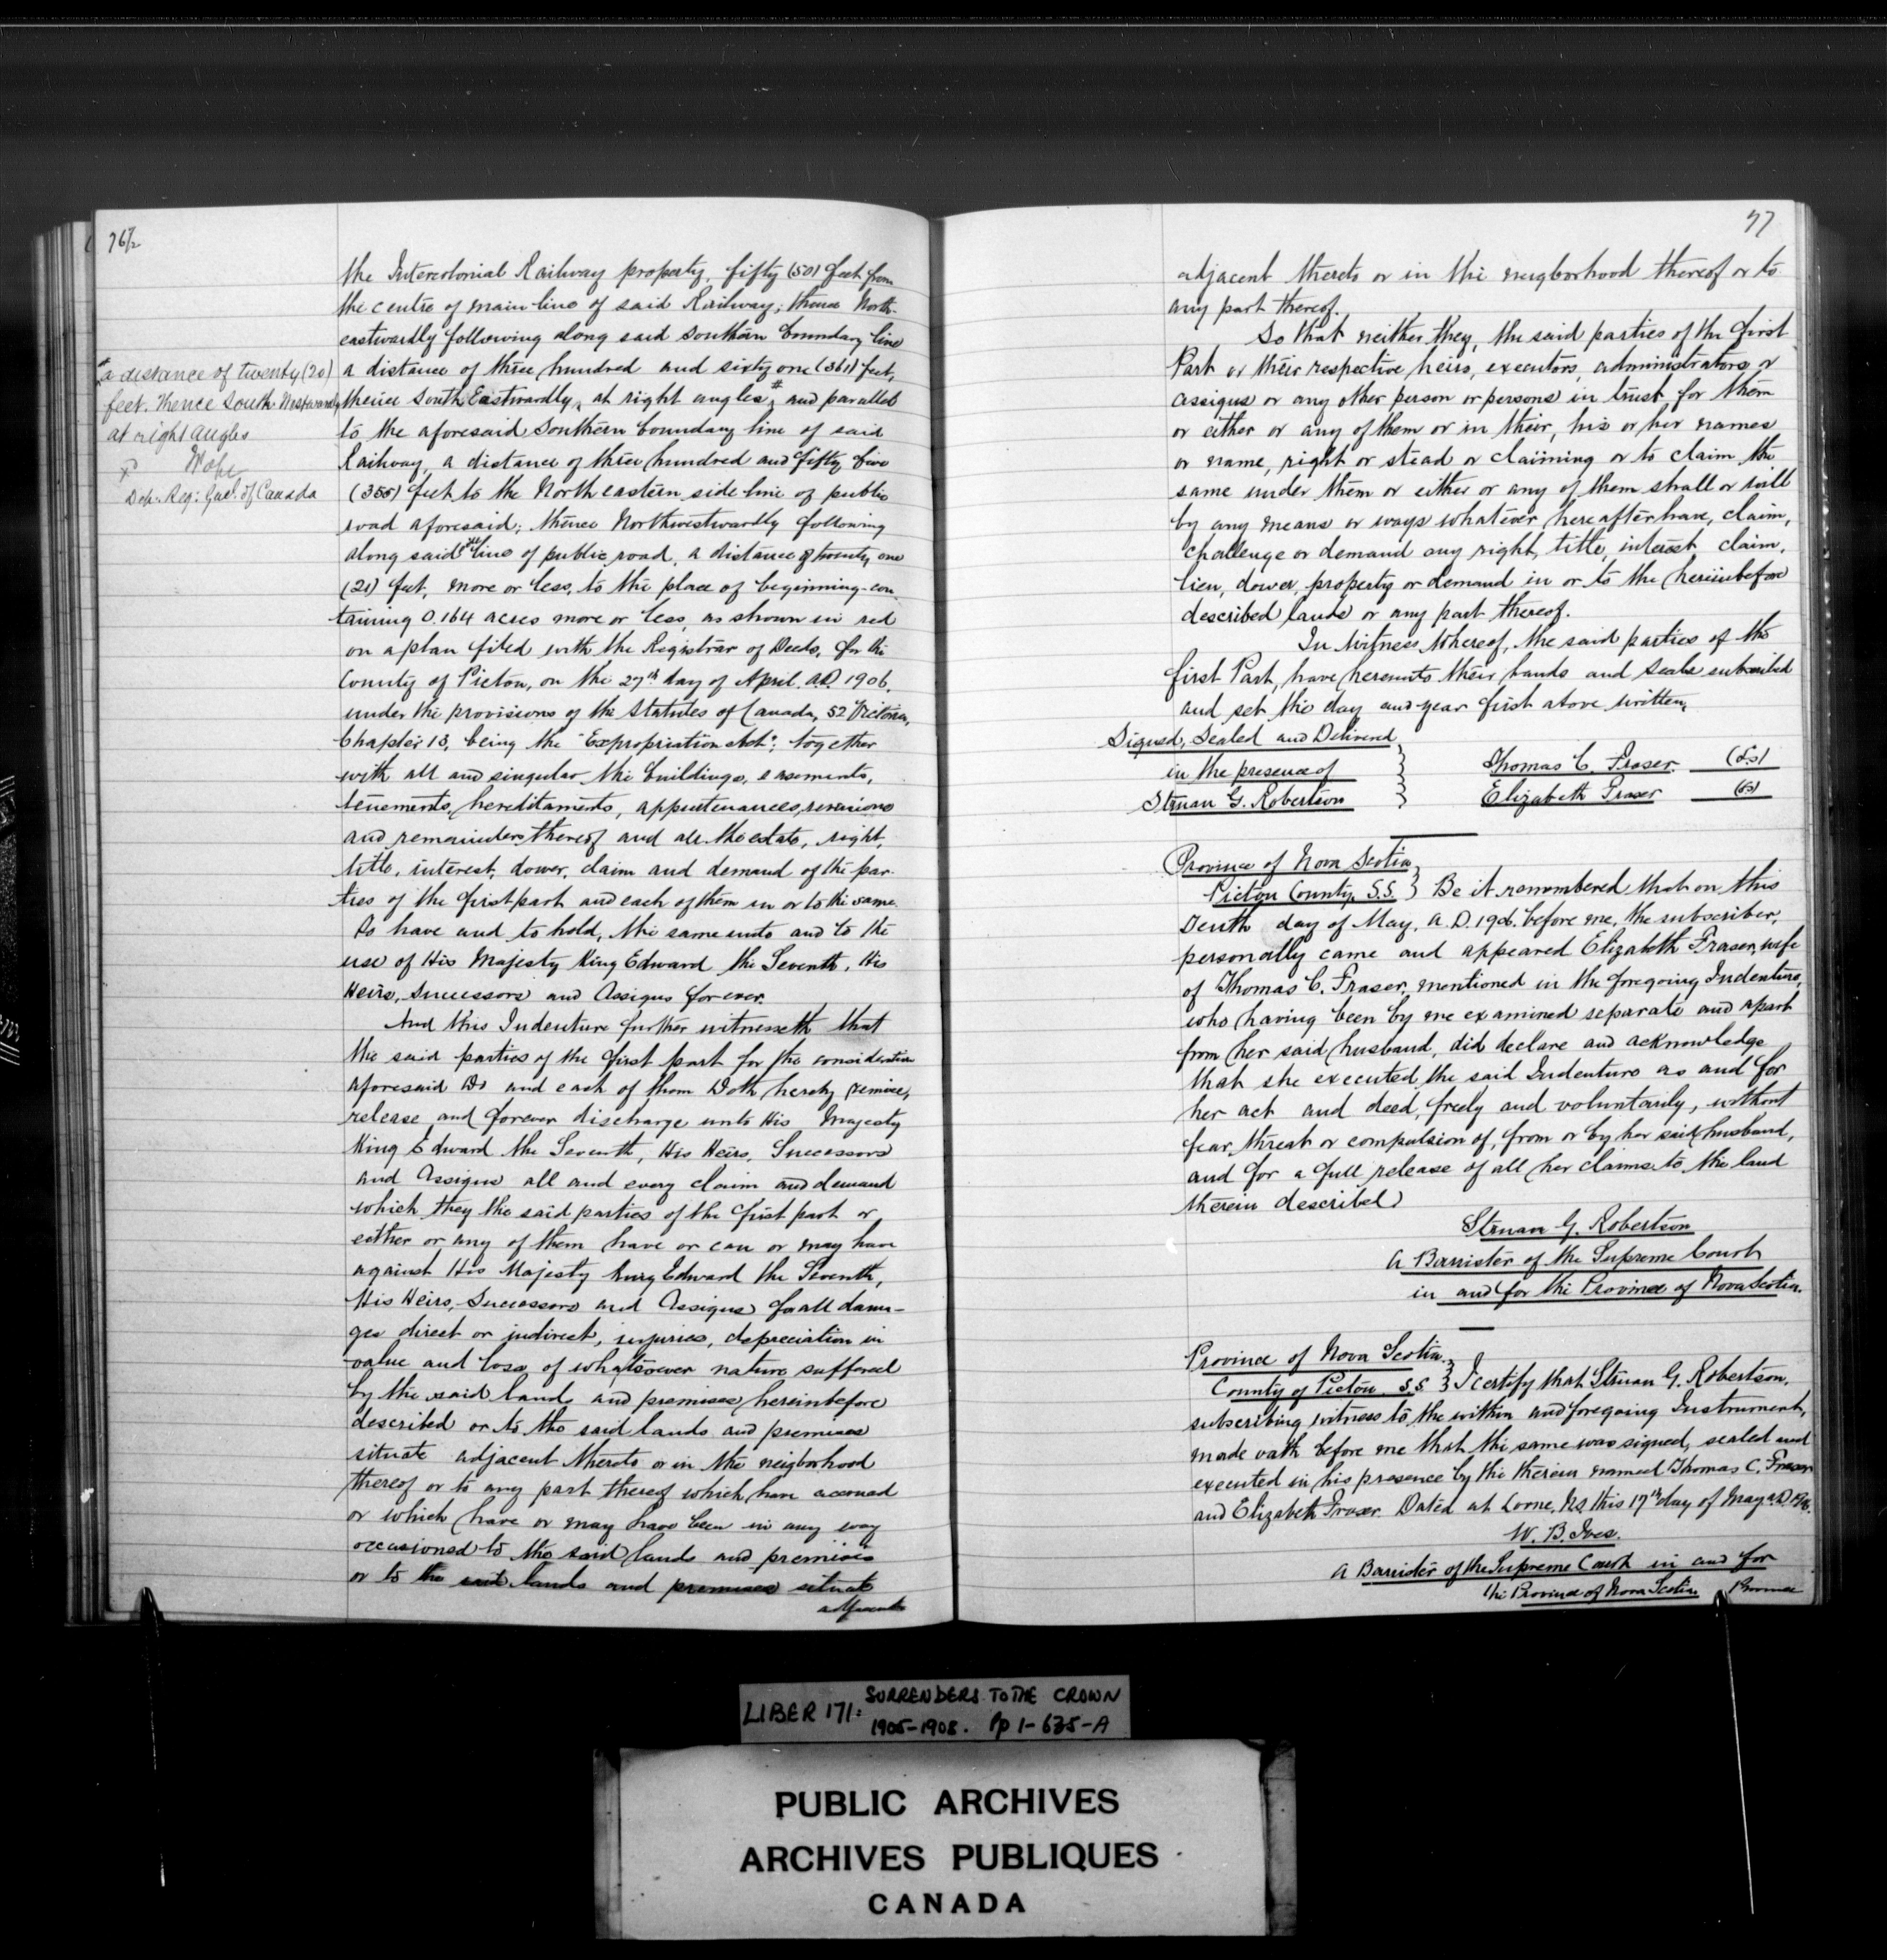 76½
the Intercolonial Railway property, fifty (50) feet from
the centre of main line of said Railway; thence North-
eastwardly following along said Southern boundary line
a distance of three hundred and sixty one (361) feet,
thence South Eastwardly, at right angles # and parallel
to the aforesaid Southern boundary line of said
Railway, a distance of three hundred and fifty five
(355) feet to the North eastern side line of public
road aforesaid; thence Northwestwardly following
along said side line of public road, a distance of twenty one
(21) feet, more or less, to the place of beginning - con-
taining 0.164 acres more or less, as shown in red
on a plan filed with the Registrar of Deeds, for the
County of Pictou, on the 27th day of April. A.D. 1906.
under the provisions of the Statutes of Canada, 52 Victoria,
Chapter 13, being the "Expropriation Act", together
with all and singular the buildings, easements,
tenements, hereditaments, appurtenances, reversions
and remainders thereof and all the estate, right,
title, interest, dower, claim and demand of the par-
ties of the first part and each of them in or to the same.
To have and to hold, the same unto and to the
use of His Majesty King Edward the Seventh, His
Heirs, Successors and Assigns forever.
And this Indenture further witnesseth that
the said parties of the first part for the consideration
aforesaid Do and each of them Doth hereby remise,
release and forever discharge unto His Majesty
King Edward the Seventh, His Heirs, Successors
and Assigns all and every claim and demand
which they the said parties of the first part or
either or any of them have or can or may have
against His Majesty King Edward the Seventh,
His Heirs, Successors and Assigns for all dama-
ges direct or indirect, injuries, depreciation in
value and loss, of whatsoever nature suffered
by the said lands and premises hereinbefore
described or to the said lands and premises
situate adjacent thereto or in the neigborhood
thereof or to any part thereof which have accrued
or which have or may have been in any way
occasioned to the said lands and premises
or to the said lands and premises situate
adjacent
# a distance of twenty (20)
feet. thence South Westwardly
at right angles
Pope
Dep. Reg: Genl. of Canada
77
adjacent thereto or in the neigborhood thereof or to
any part thereof.
So that neither they, the said parties of the first
Part or their respective heirs, executors, administrators or
assigns or any other person or persons in trust for them
or either or any of them or in their, his or her names
or name, right or stead or claiming or to claim the
same under them or either or any of them shall or will
by any means or ways whatever hereafter have, claim,
challenge or demand any right, title, interest, claim,
lien, dower, property or demand in or to the hereinbefore
described lands or any part thereof.
In Witness Whereof, the said parties of the
first Part, have hereunto their hands and seals subscribed
and set the day and year first above written,
Signed, Sealed and Delivered
in the presence of
Struan G. Robertson
Thomas C. Fraser. (LS)
Elizabeth Fraser (LS)
Province of Nova Scotia
Pictou County, S.S. } Be it remembered that on this
Tenth day of May, A.D. 1906 before me, the subscriber,
personally came and appeared Elizabeth Fraser, wife
of Thomas C. Fraser, mentioned in the foregoing Indenture,
who having been by me examined separate and apart
from her said husband, did declare and acknowledge
that she executed the said Indenture as and for
her act and deed, freely and voluntarily, without
fear, threat or compulsion of, from or by her said husband,
and for a full release of all her claims to the land
therein described
Struan G. Robertson
A Barrister of the Supreme Court
in and for the Province of Nova Scotia.
Province of Nova Scotia.
County of Pictou S.S. } I certify that Struan G. Robertson,
subscribing witness to the within and foregoing Instrument,
made oath before me that the same was signed, sealed and
executed in his presence by the therein named Thomas C. Fraser
and Elizabeth Fraser. Dated at Lorne, N.S. this 17th day of May A.D. 1906.
W. B. Ives.
A Barrister of the Supreme Court in and for
the Province of Nova Scotia
Province
LIBER 171: SURRENDERS TO THE CROWN
1905-1908. Pp 1-635-A
PUBLIC ARCHIVES
ARCHIVES PUBLIQUES
CANADA